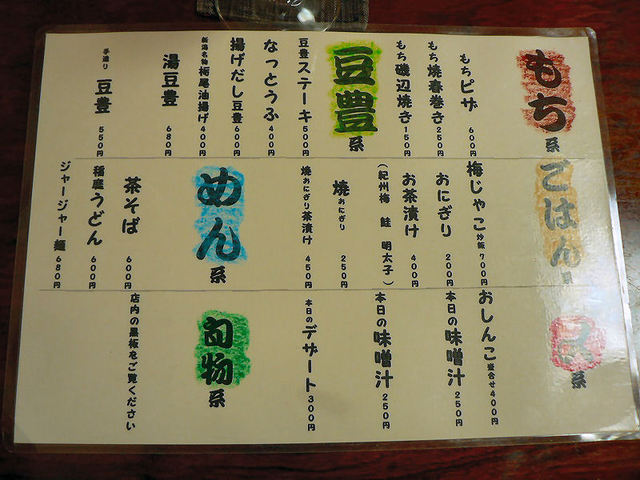 もち系
もちピザ 600円
もち焼春巻き 250円
もち磯辺焼き 150円
豆豊系
豆豊ステーキ 500円
なっとうふ 400円
揚げだし豆豊 600円
新潟名物 栃尾油揚げ 400円
湯豆豊 680円
手造り 豆豊 550円
ごはん系
梅じゃこ炒飯 700円
おにぎり 200円
お茶漬け 400円
(紀州梅 鮭 明太子)
焼おにぎり 250円
焼おにぎり茶漬け 450円
めん系
茶そば 600円
稲庭うどん 600円
ジャージャー麺 680円
系
おしんこ盛合せ 400円
本日の味噌汁 250円
本日の味噌汁 250円
本日のデザート 300円
旬物系
店内の黒板をご覧ください